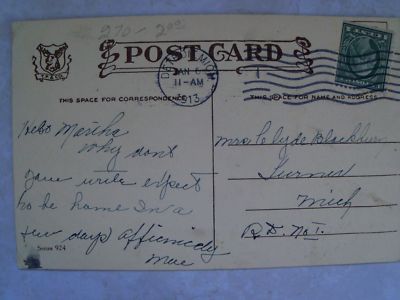 270-20
POST CARD
DETROIT, MICH
JAN
11-AM
1913
THIS SPACE FOR CORRESPONDENCE
THIS SPACE FOR NAME AND ADDRESS
Hello Martha
Why dont
you write expect
to be home In a
few days
Mae
Series 924
Mrs Clyde Blackburn
Turner
Mich
R.D. No 1.